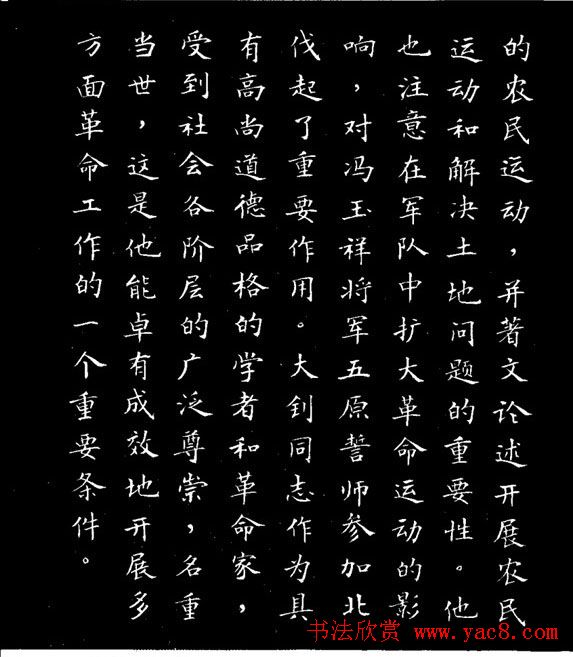 的农民运动，并著文论述开展农民
运动和解决土地问题的重要性。他
也注意在军队中扩大革命运动的影
响，对冯玉祥将军五原誓师参加北
伐起了重要作用。大钊同志作为具
有高尚道德品格的学者和革命家，
受到社会各阶层的广泛尊崇，名重
当世，这是他能卓有成效地开展多
方面革命工作的一个重要条件。
书法欣赏 www.yac8.com